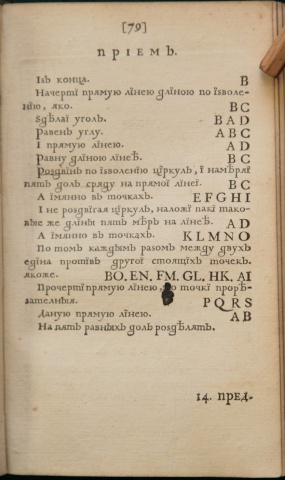 [79]
ПРІЕМЪ.
Ізъ конца. B
Начерті прямую лінею дліною по ізволе-
нію, яко. BC
Здѣлаі уголъ. BAD
Равенъ углу. ABC
І прямую лінею. AD
Равну дліною лінеѣ. BC
Роздвінь по ізволенію ціркуль, і намѣряі
пять доль сряду на прямоі лінеі. BC
А імянно въ точкахъ. EFGHI
І не роздвігая ціркуль, наложі пакі тако-
вые же дліны пять мѣръ на лінеѣ. AD
А імянно въ точкахъ. KLMNO
По томъ каждымъ разомъ между двухъ
едіна протівъ другоі стоящіхъ точекъ.
якоже. BO, EN, FM, GL, HK, AI
Прочерті прямую лінею, по точкі прорѣ-
зателныя. PQRS
Даную прямую лінею. AB
На пять равныхъ доль роздѣлятъ.
14. ПРЕД-